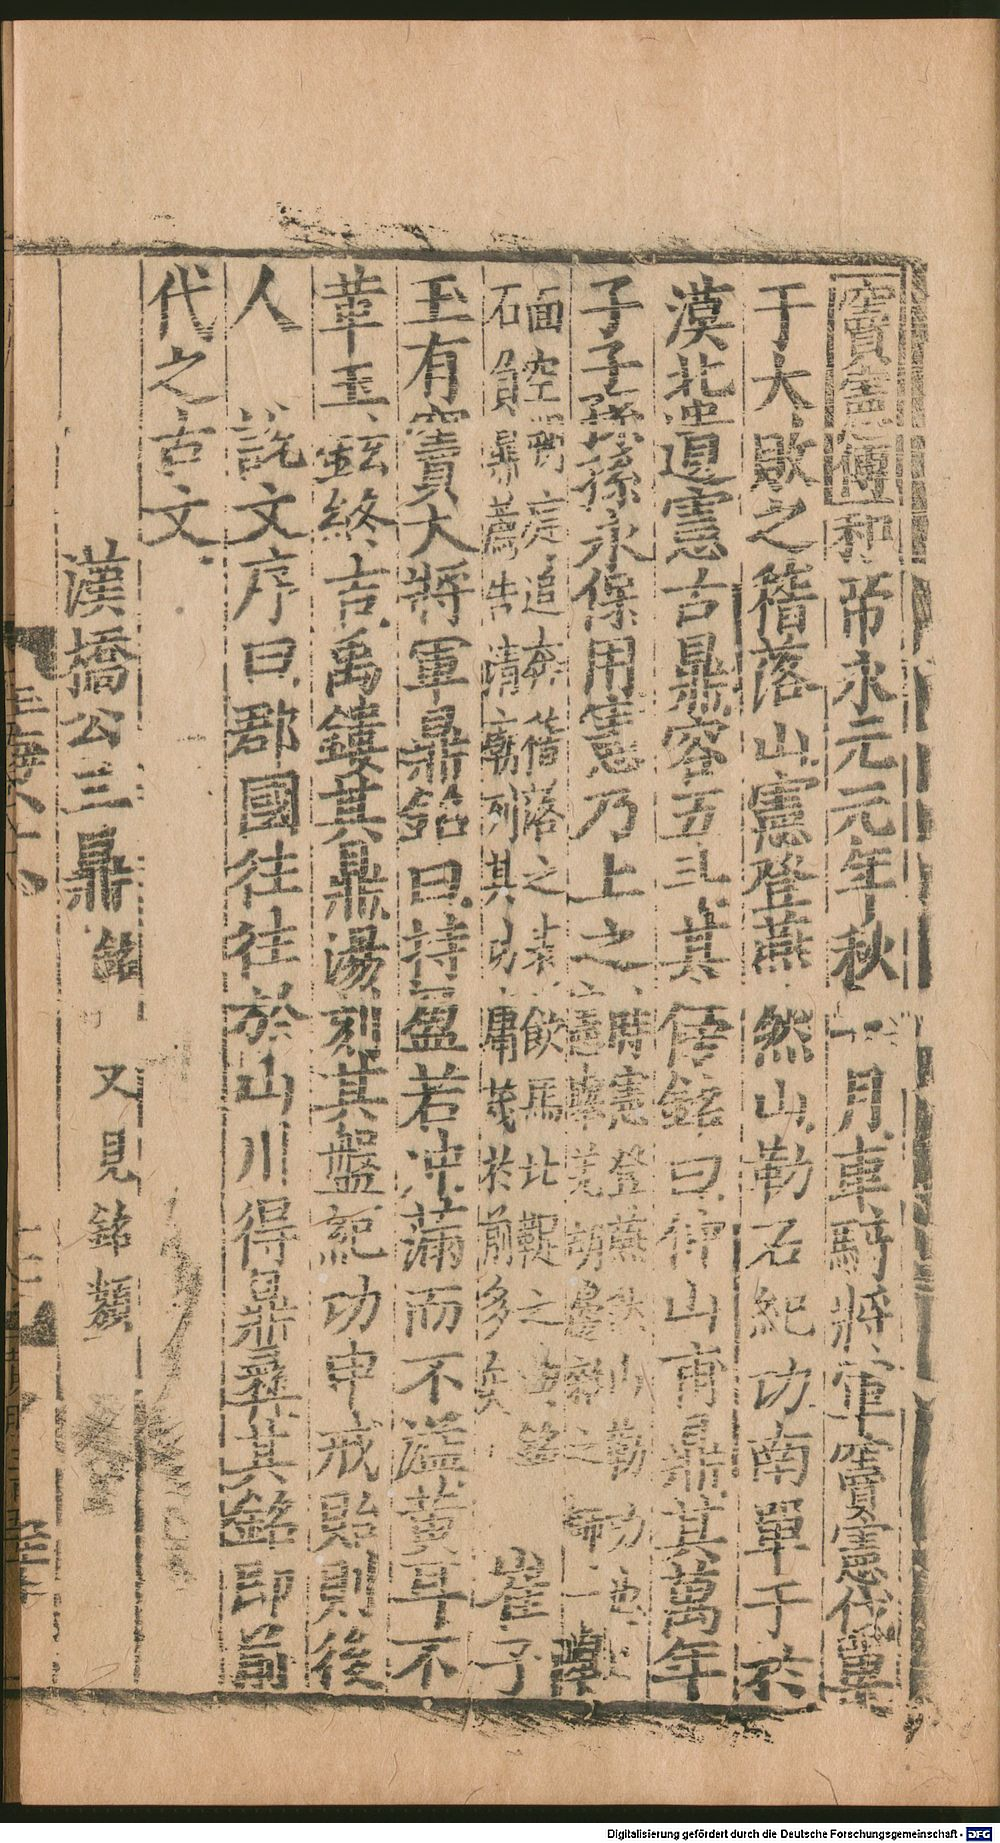 竇憲傳和帝永元元年秋 月車騎將軍竇憲伐單
于大敗之稽落山憲登燕然山勒石紀功南單于於
漠北遺憲古鼎容五斗其傍銘曰仲山甫鼎其萬年
子子孫孫永保用憲乃上之
時憲登燕然山勒功
之
追奔稽落之表飲馬比鞮之
石負鼎薦告清廟列其功庸茂於前多矣
崔子
玉有竇大將軍鼎銘曰持盈若冲滿而不溢黃耳不
革玉鉉終吉禹鏤其鼎湯刻其盤紀功申戒貽則後
人 說文序曰郡國往往於山川得鼎彝其銘即前
代之古文
漢橋公三鼎銘 又見銘類
Digitalisierung gefördert durch die Deutsche Forschungsgemeinschaft - DFG